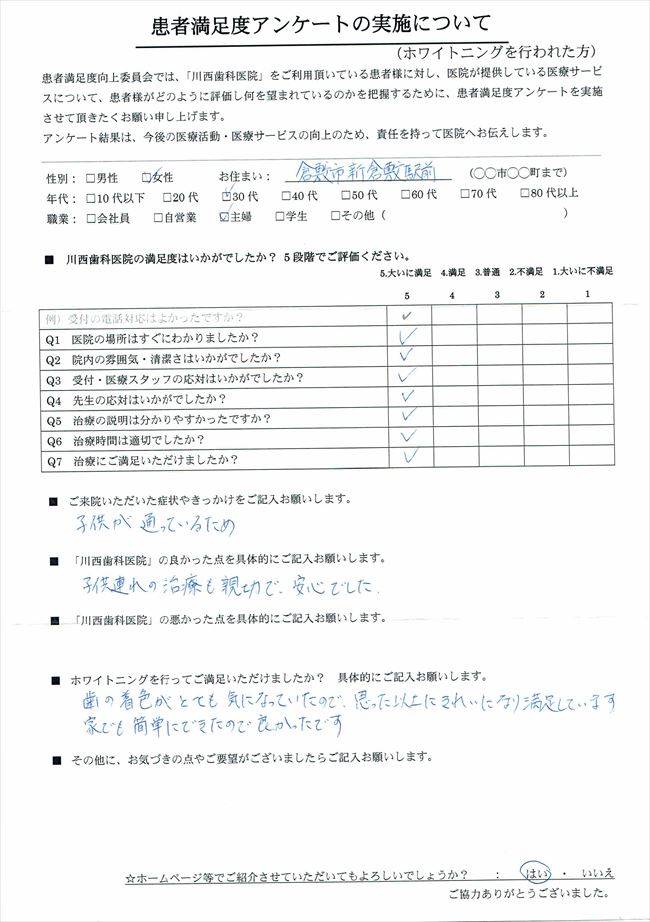 患者満足度アンケートの実施について
（ホワイトニングを行われた方）
患者満足度向上委員会では、「川西歯科医院」をご利用頂いている患者様に対し、医院が提供している医療サービ
スについて、患者様がどのように評価し何を望まれているのかを把握するために、患者満足度アンケートを実施
させて頂きたくお願い申し上げます。
アンケート結果は、今後の医療活動・医療サービスの向上のため、責任を持って医院へお伝えします。
性別： □男性 ☑女性 お住まい： 倉敷市新倉敷駅前 （〇〇市〇〇町まで）
年代： □10代以下 □20代 ☑30代 □40代 □50代 □60代 □70代 □80代以上
職業： □会社員 □自営業 ☑主婦 □学生 □その他（ ）
■ 川西歯科医院の満足度はいかがでしたか？ 5段階でご評価ください。
5.大いに満足 4.満足 3.普通 2.不満足 1.大いに不満足
5 4 3 2 1
例）受付の電話対応はよかったですか？ ✓
Q1 医院の場所はすぐにわかりましたか？ ✓
Q2 院内の雰囲気・清潔さはいかがでしたか？ ✓
Q3 受付・医療スタッフの応対はいかがですか？ ✓
Q4 先生の応対はいかがでしたか？ ✓
Q5 治療の説明は分かりやすかったですか？ ✓
Q6 治療時間は適切でしたか？ ✓
Q7 治療にご満足いただけましたか？ ✓
■ ご来院いただいた症状やきっかけをご記入お願いします。
子供が通っているため
■ 「川西歯科医院」の良かった点を具体的にご記入お願いします。
子供連れの治療も親切で、安心でした.
■ 「川西歯科医院」の悪かった点を具体的にご記入お願いします。
■ ホワイトニングを行ってご満足いただけましたか？ 具体的にご記入お願いします。
歯の着色がとても気になっていたので、思った以上にきれいになり満足しています
家でも簡単にできたので良かったです
■ その他に、お気づきの点やご要望がございましたらご記入お願いします。
☆ホームページ等でご紹介させていただいてもよろしいでしょうか？ ： はい ・ いいえ
ご協力ありがとうございました。